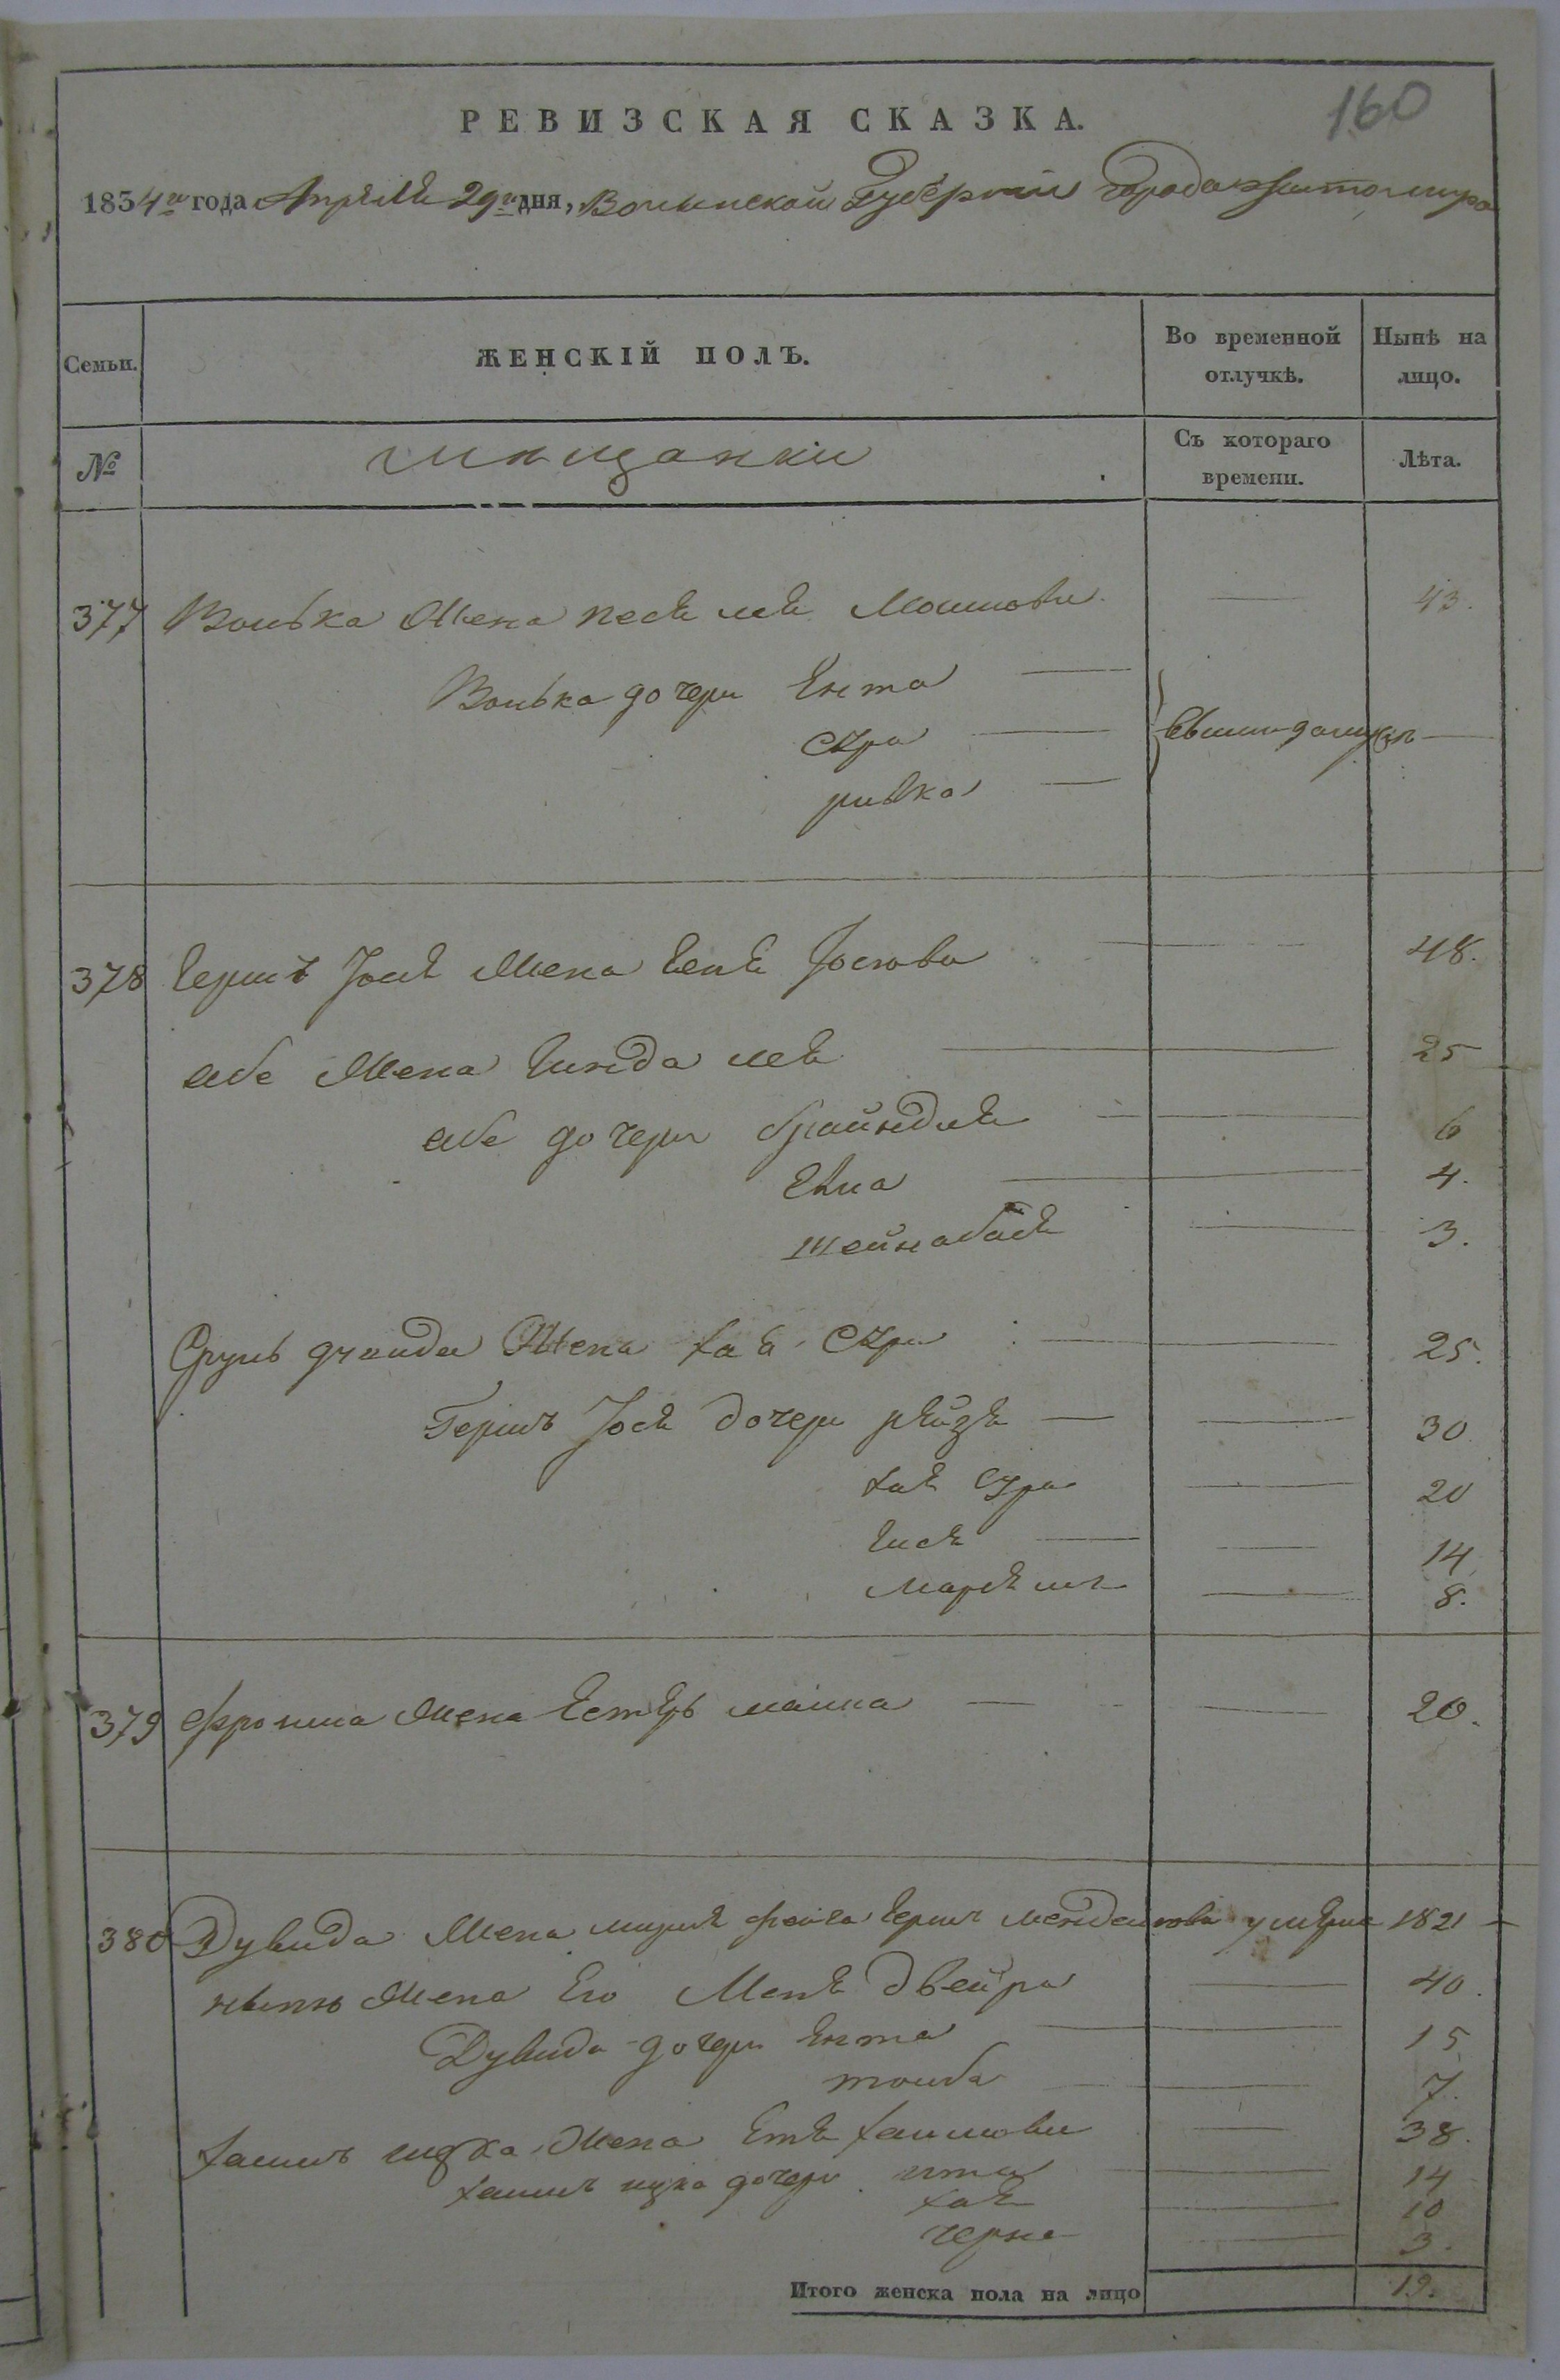 160
РЕВИЗСКАЯ СКАЗКА.
1834го года Апреля 29го дня, Волынской Губернии города Житомира
Семьи. ЖЕНСКІЙ ПОЛЪ. Во временной отлучкѣ. Нынѣ на лицо.
№ мещанки Съ котораго времени. Лѣта.
377 Волька Жена Песя лея Мошкова — 43.
Волька дочери Ента —
Сура — вышли замуж —
ривка —
378 Герш Jося Жена Геня Jосiова — 48.
абе Жена Гинда лея — 25
абе дочери брайндля — 6
— 4.
шейнабася — 3.
Срул Жена хая Сура — 25.
Герш Jося дочери рейзя — — 30
хая Сура — 20
Гися — — 14
Маріям — 8.
379 Фроима Жена Естер малка — — 20.
380 Дувида Жена фейга Герш Менделiова умерла 1821 —
ныне Жена Его Меня двейра — 40.
Дувида дочери Ента — 15
тоиба — 7.
хаим ицка Жена Етя хаимова — 38.
хаим ицка дочери ита — 14
хая — 10
черна — 3.
Итого женска пола на лицо 19.